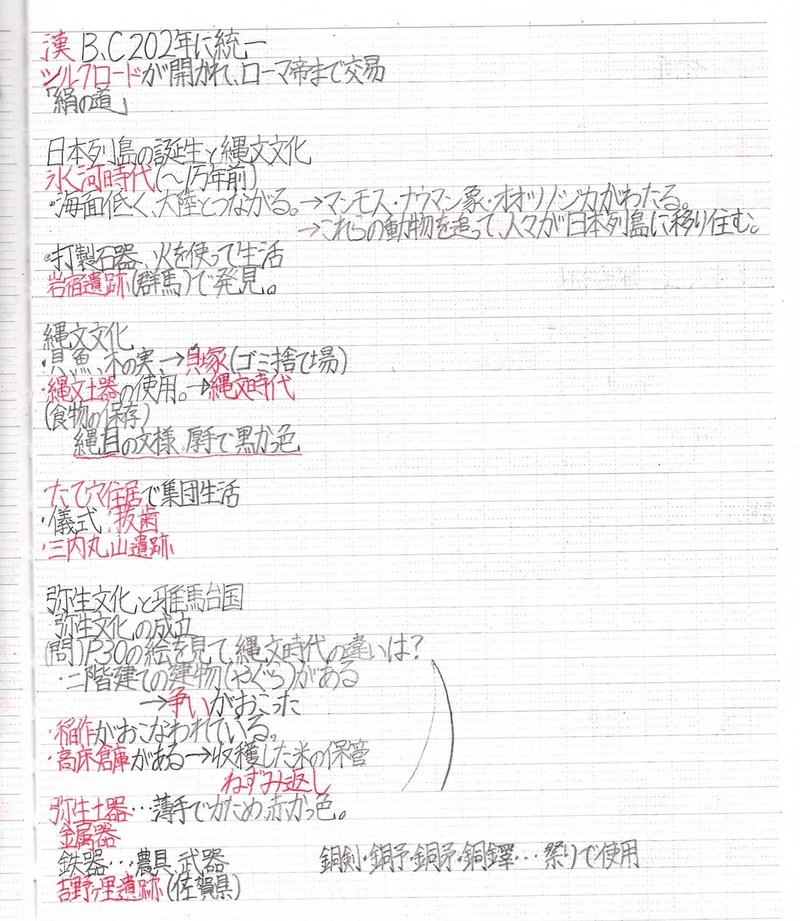 漢 B.C 202年に統一
シルクロードが開かれ、ローマ帝まで交易
「絹の道」
日本列島の誕生と縄文文化
氷河時代(～1万年前)
・海面低く、大陸とつながる。→マンモス・ナウマン象・オオツノジカがわたる。
→これらの動物を追って、人々が日本列島に移り住む。
・打製石器、火を使って生活
岩宿遺跡(群馬)で発見。
縄文文化
・貝、魚、木の実、→貝塚(ゴミ捨て場)
・縄文土器の使用。→縄文時代
(食物の保存)
縄目の文様、厚手で黒かっ色
たて穴住居で集団生活
・儀式:抜歯
・三内丸山遺跡
弥生文化と邪馬台国
弥生文化の成立
(問)P30の絵を見て、縄文時代の違いは?
・二階建ての建物(やぐら)がある
→争いがおこった
・稲作がおこなわれている。
・高床倉庫がある→収穫した米の保管
ねずみ返し
弥生土器…薄手でかため、赤かっ色。
金属器
鉄器…農具、武器 銅剣・銅予・銅矛・銅鐸…祭りで使用
吉野ヶ里遺跡(佐賀県)